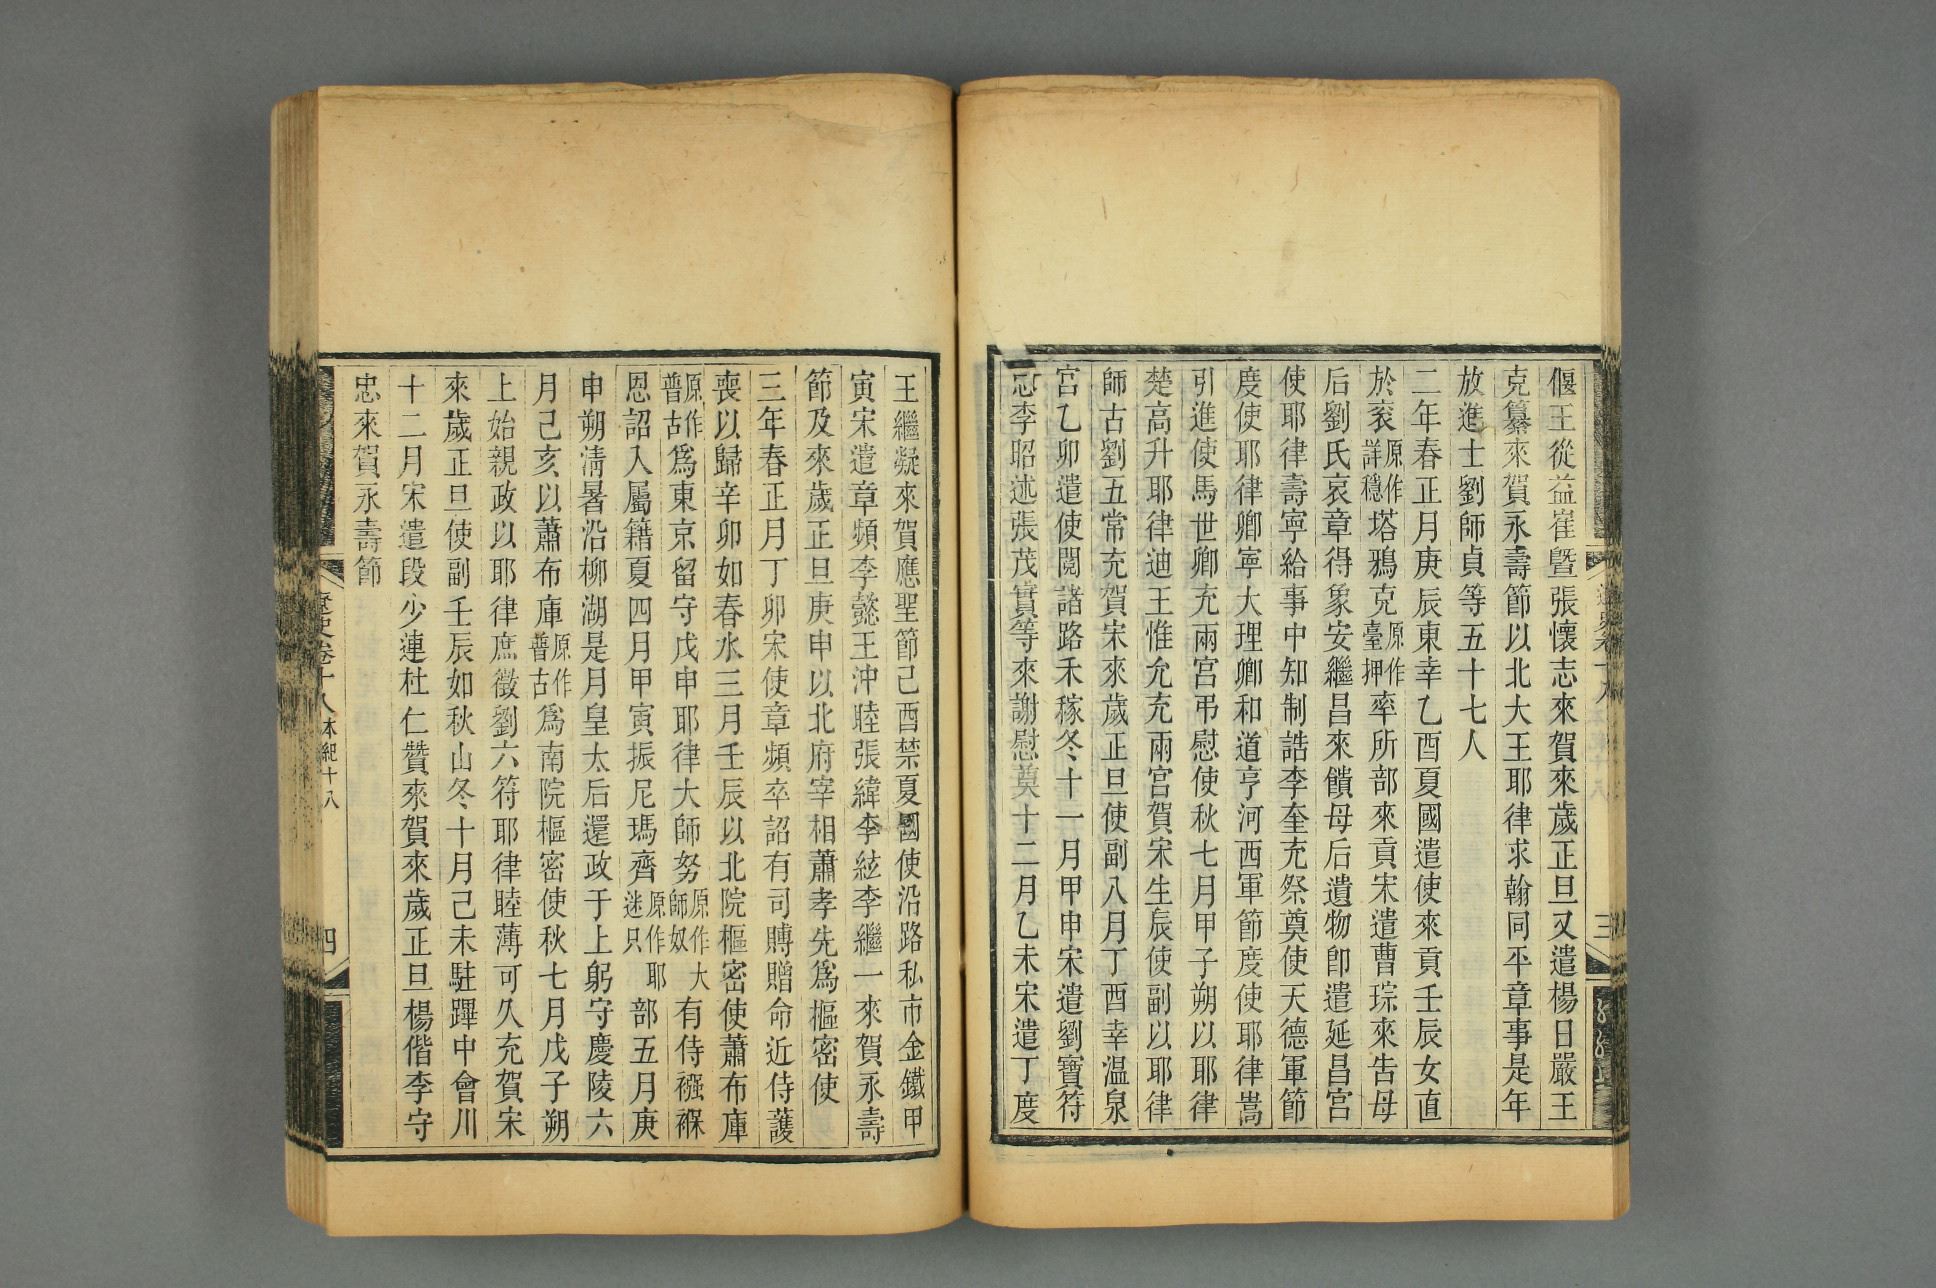 偃王從益崔暨張懷志來賀來歲正旦又遣楊日嚴王
克纂來賀永壽節以北大王耶律求翰同平章事是年
放進士劉師貞等五十七人
二年春正月庚辰東幸乙酉夏國遣使來貢壬辰女直
於衮原作詳穩塔鴉克原作臺押率所部來貢宋遣曹琮來告母
后劉氏哀章得象安繼昌來饋母后遺物卽遣延昌宮
使耶律壽寧給事中知制誥李奎充祭奠使天德軍節
度使耶律卿寧大理卿和道亨河西軍節度使耶律嵩
引進使馬世卿充兩宮弔慰使秋七月甲子朔以耶律
楚高升耶律迪王惟允充兩宮賀宋生辰使副以耶律
師古劉五常充賀宋來歲正旦使副八月丁酉幸溫泉
宮乙卯遣使閱諸路禾稼冬十一月甲申宋遣劉寶符
忠李昭述張茂實等來謝慰奠十二月乙未宋遣丁度
王繼凝來賀應聖節己酉禁夏國使沿路私市金鐵甲
寅宋遣章頻李懿王沖睦張緯李紘李繼一來賀永壽
節及來歲正旦庚申以北府宰相蕭孝先爲樞密使
三年春正月丁卯宋使章頻卒詔有司賻贈命近侍護
喪以歸辛卯如春水三月壬辰以北院樞密使蕭布庫
原作普古爲東京留守戊申耶律大師努原作大師奴有侍襁褓
恩詔入屬籍夏四月甲寅振尼瑪齊原作耶迷只部五月庚
申朔淸暑沿柳湖是月皇太后還政于上躬守慶陵六
月己亥以蕭布庫原作普古爲南院樞密使秋七月戊子朔
上始親政以耶律庶徵劉六符耶律睦薄可久充賀宋
來歲正旦使副壬辰如秋山冬十月己未駐蹕中會川
十二月宋遣段少連杜仁贊來賀來歲正旦楊偕李守
忠來賀永壽節
遼史卷十八 本紀十八
四
三